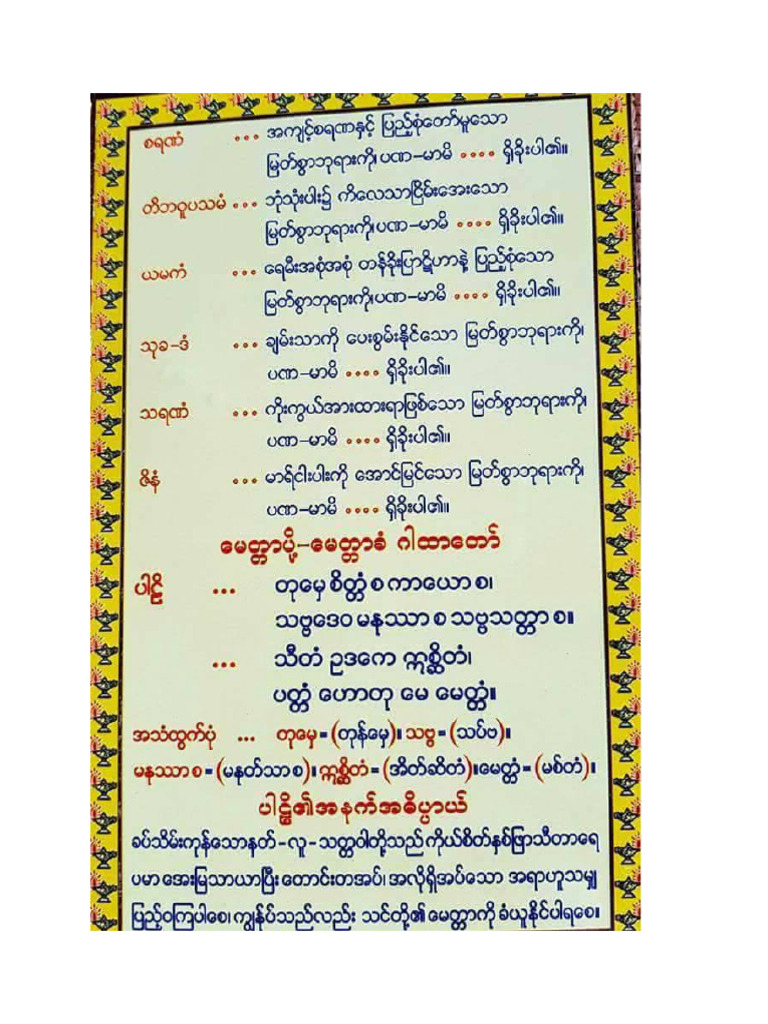 စရဏံ ... အကျင့်စရဏနှင့် ပြည့်စုံတော်မူသော
မြတ်စွာဘုရားကို၊ ပဏ-မာမိ .... ရှိခိုးပါ၏။
တိဘဝူပသမံ ... ဘုံသုံးပါး၌ ကိလေသာငြိမ်းအေးသော
မြတ်စွာဘုရားကို၊ ပဏ-မာမိ .... ရှိခိုးပါ၏။
ယမကံ ... ရေမီးအစုံအစုံ တန်ခိုးပြာဋိဟာနဲ့ ပြည့်စုံသော
မြတ်စွာဘုရားကို၊ ပဏ-မာမိ .... ရှိခိုးပါ၏။
သုခ-ဒံ ... ချမ်းသာကို ပေးစွမ်းနိုင်သော မြတ်စွာဘုရားကို၊
ပဏ-မာမိ .... ရှိခိုးပါ၏။
သရဏံ ... ကိုးကွယ်အားထားရာဖြစ်သော မြတ်စွာဘုရားကို၊
ပဏ-မာမိ .... ရှိခိုးပါ၏။
ဇိနံ ... မာရ်ငါးပါးကို အောင်မြင်သော မြတ်စွာဘုရားကို၊
ပဏ-မာမိ .... ရှိခိုးပါ၏။
မေတ္တာပို့-မေတ္တာခံ ဂါထာတော်
ပါဠိ ... တုမှေ စိတ္တံ စ ကာယော စ၊
သဗ္ဗဒေဝ မနုဿာ စ သဗ္ဗသတ္တာ စ။
... သီတံ ဥဒကေ ဣစ္ဆိတံ၊
ပတ္တံ ဟောတု မေ မေတ္တံ။
အသံထွက်ပုံ ... တုမှေ = (တုန်မှေ)။ သဗ္ဗ = (သပ်ဗ)။
မနုဿာ စ = (မနုတ်သာ စ)။ ဣစ္ဆိတံ = (အိတ်ဆိတံ)။ မေတ္တံ = (မစ်တံ)။
ပါဠိ၏အနက်အဓိပ္ပာယ်
ခပ်သိမ်းကုန်သောနတ်-လူ-သတ္တဝါတို့သည် ကိုယ်စိတ်နှစ်ဖြာသီတာရေ
ပမာ အေးမြသာယာပြီး တောင်းတအပ်၊ အလိုရှိအပ်သော အရာဟူသမျှ
ပြည့်ဝကြပါစေ၊ ကျွန်ုပ်သည်လည်း သင်တို့၏ မေတ္တာကို ခံယူနိုင်ပါရစေ။